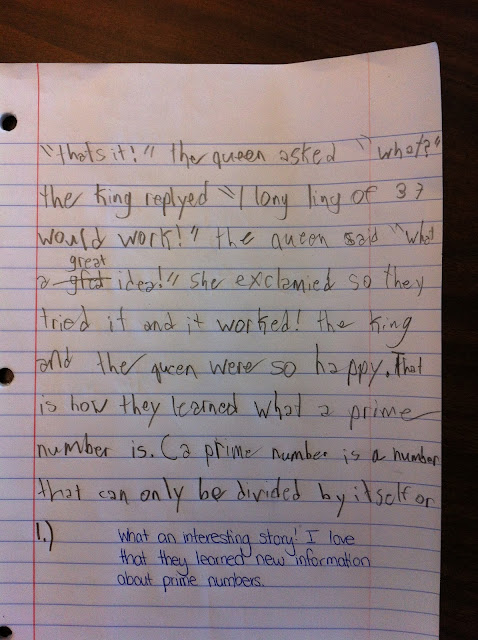 "thats it!" the queen asked "what?"
the king replyed "1 long ling of 37
would work!" the queen said "what
great
a gfat idea!" she exclamied so they
tried it and it worked! the king
and the queen were so happy. That
is how they learned what a prime
number is. (a prime number is a number
that can only be divided by itself or
1.)
What an interesting story! I love
that they learned new information
about prime numbers.